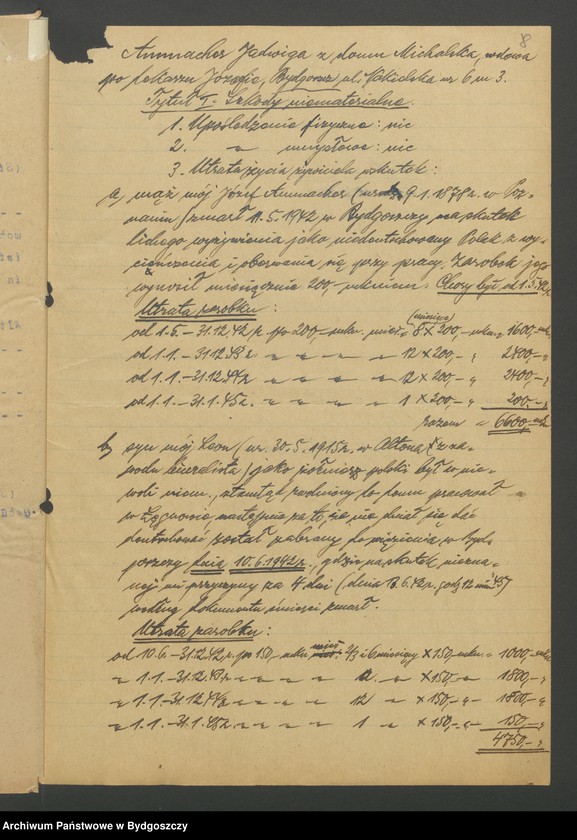 8
Ammacher Jadwiga z domu Michalska, wdowa
po lekarzu Józefie, Bydgoszcz, ul. Nakielska nr 6 m 3.
Tytuł I. Szkody niematerialne.
1. Upośledzenie fizyczne: nic
2. " umysłowe: nic
3. Utrata życia żywiciela wskutek:
a, mąż mój Józef Ammacher (ur. 9.1.1878 r. w Poz-
naniu) zmarł 11.5.1942 w Bydgoszczy na skutek
lichego wyżywienia jako niedontschowany Polak z wy-
cieńczenia i oberwania się przy pracy. Zarobek jego
wynosił miesięcznie 200,- . Chory był od 1.5.42 r.
Utrata zarobku:
(miesięcy)
od 1.5. – 31.12.42 r. po 200,- mies. = 8 x 200,- = 1600,-
od 1.1. – 31.12.43 r. " " " " 12 x 200,- " 2400,- "
od 1.1. – 31.12.44 r. " " " " 12 x 200,- " 2400,- "
od 1.1. – 31.1.45 r. " " " " 1 x 200,- " 200,- "
razem = 6600,-
b, syn mój Leon (ur. 30.5.1915 r. w Altona) z za-
wodu jako żołnierz polski był w nie-
woli niem., stamtąd zwolniony do domu pracował
w następnie za to, że nie chciał się dać
został zabrany do więzienia w Byd-
goszczy dnia 10.6.1942 r., gdzie na skutek niezna-
nej mi przyczyny za 4 dni (dnia 13.6.42 r. godz 12 min 45)
według dokumentu śmierci zmarł.
Utrata zarobku:
od 10.6 – 31.12.42 r. po 150,- mies. 2/3 i 6 miesięcy x 150,- = 1000,-
" 1.1. – 31.12.43 r. " " " 12 " x 150,- " 1800,- "
" 1.1. – 31.12.44 r. " " " 12 " x 150,- " 1800,- "
" 1.1. – 31.1.45 r. " " " 1 " x 150,- " 150,- "
4750,- "
Archiwum Państwowe w Bydgoszczy